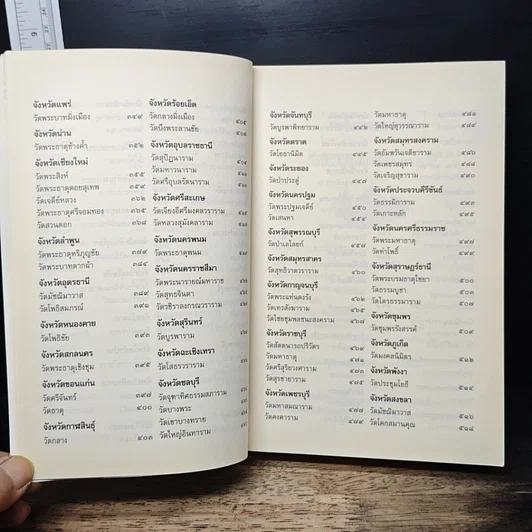 จังหวัดแพร่
วัดพระบาทมิ่งเมือง ๓๔๙
จังหวัดน่าน
วัดพระธาตุช้างค้ำ ๓๕๒
จังหวัดเชียงใหม่
วัดพระสิงห์ ๓๕๕
วัดพระธาตุดอยสุเทพ ๓๕๙
วัดเจดีย์หลวง ๓๖๒
วัดพระธาตุศรีจอมทอง ๓๖๕
วัดสวนดอก ๓๖๘
จังหวัดลำพูน
วัดพระธาตุหริภุญชัย ๓๗๙
วัดพระบาทตากผ้า ๓๘๔
จังหวัดอุดรธานี
วัดมัชฌิมาวาส
วัดโพธิสมภรณ์ ๓๙๑
จังหวัดหนองคาย
วัดโพธิชัย ๓๙๓
จังหวัดสกลนคร
วัดพระธาตุเชิงชุม ๓๙๕
จังหวัดขอนแก่น
วัดศรีจันทร์ ๓๙๗
วัดธาตุ ๔๐๐
จังหวัดกาฬสินธุ์
วัดกลาง ๔๐๓
จังหวัดร้อยเอ็ด
วัดกลางมิ่งเมือง ๔๐๕
วัดบึงพระลานชัย
จังหวัดอุบลราชธานี
วัดสุปัฏนาราม
วัดมหาวนาราม
วัดศรีอุบลรัตนาราม
จังหวัดศรีสะเกษ
วัดเจียงอีศรีมงคลวราราม
วัดหลวงสุมังคลาราม
จังหวัดนครพนม
วัดพระธาตุพนม
จังหวัดนครราชสีมา
วัดพระนารายณ์มหาราช
วัดสุทธจินดา
วัดวชิราลงกรณวราราม
จังหวัดสุรินทร์
วัดบูรพาราม
จังหวัดฉะเชิงเทรา
วัดโสธรวราราม
จังหวัดชลบุรี
วัดจุฑาทิศธรรมสภาราม
วัดบางพระ
วัดเขาบางทราย
วัดใหญ่อินทาราม
จังหวัดจันทบุรี
วัดบูรพาพิทยาราม ๔๔๒
จังหวัดตราด
วัดโยธานิมิต ๔๔๕
จังหวัดระยอง
วัดป่าประดู่ ๔๔๗
จังหวัดนครปฐม
วัดพระปฐมเจดีย์ ๔๕๐
วัดเสนหา ๔๕๔
จังหวัดสุพรรณบุรี
วัดป่าเลไลยก์ ๔๕๗
จังหวัดสมุทรสาคร
วัดสุทธิวาตวราราม ๔๕๙
จังหวัดกาญจนบุรี
วัดพระแท่นดงรัง ๔๖๒
วัดเทวสังฆาราม ๔๖๓
วัดไชยชุมพลชนะสงคราม ๔๖๕
จังหวัดราชบุรี
วัดสัตตนารถปริวัตร ๔๖๗
วัดมหาธาตุ ๔๗๑
วัดศรีสุริยวงศาราม ๔๗๓
วัดสุรชายาราม ๔๗๕
จังหวัดเพชรบุรี
วัดมหาสมณาราม ๔๗๗
วัดคงคาราม ๔๗๙
วัดมหาธาตุ ๔๘๑
วัดใหญ่สุวรรณาราม
จังหวัดสมุทรสงคราม
วัดอัมพวันเจติยาราม
วัดเพชรสมุทร
วัดเจริญสุขาราม
จังหวัดประจวบคีรีขันธ์
วัดธรรมิการาม ๔๙๓
วัดเกาะหลัก ๔๙๕
จังหวัดนครศรีธรรมราช
วัดพระมหาธาตุ ๔๙๗
วัดท่าโพธิ์ ๔๙๙
จังหวัดสุราษฎร์ธานี
วัดพระบรมธาตุไชยา
วัดธรรมบูชา ๕๐๓
วัดไตรธรรมาราม ๕๐๗
จังหวัดชุมพร
วัดชุมพรรังสรรค์
จังหวัดภูเก็ต
วัดมงคลนิมิตร ๕๑๒
จังหวัดพังงา
วัดประชุมโยธี ๕๑๔
จังหวัดสงขลา
วัดมัชฌิมาวาส ๕๑๖
วัดโคกสมานคุณ ๕๑๘